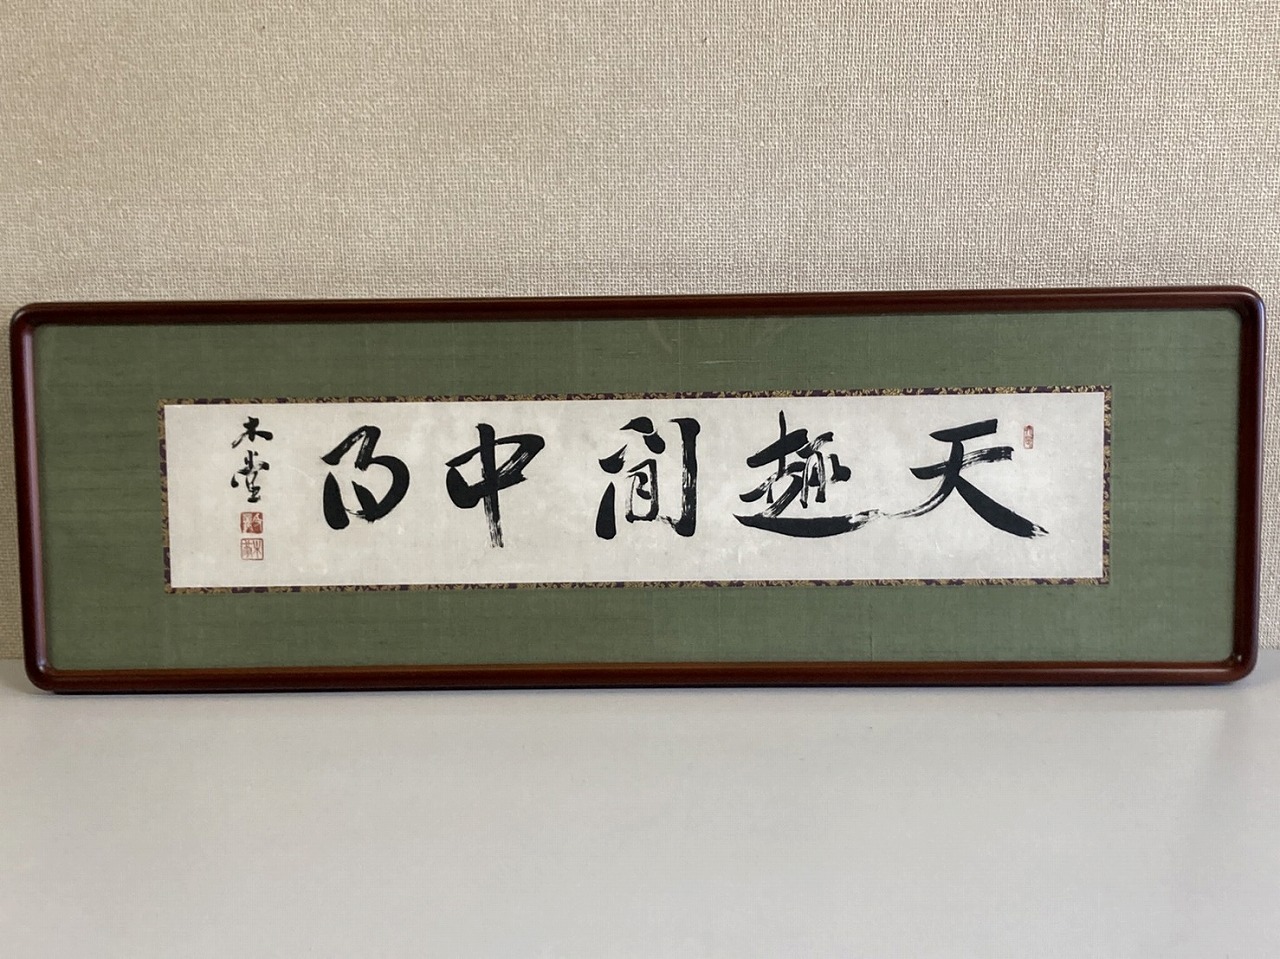 天趣閒中得
木堂